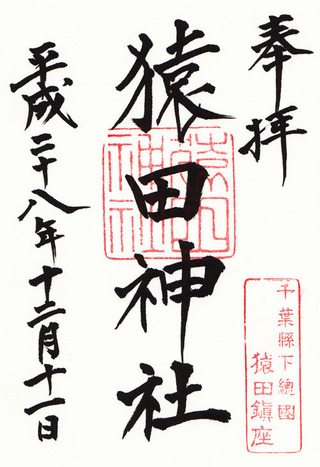 奉拝
千葉縣下總國
猿田鎭座
猿田神社
平成二十八年十二月十一日